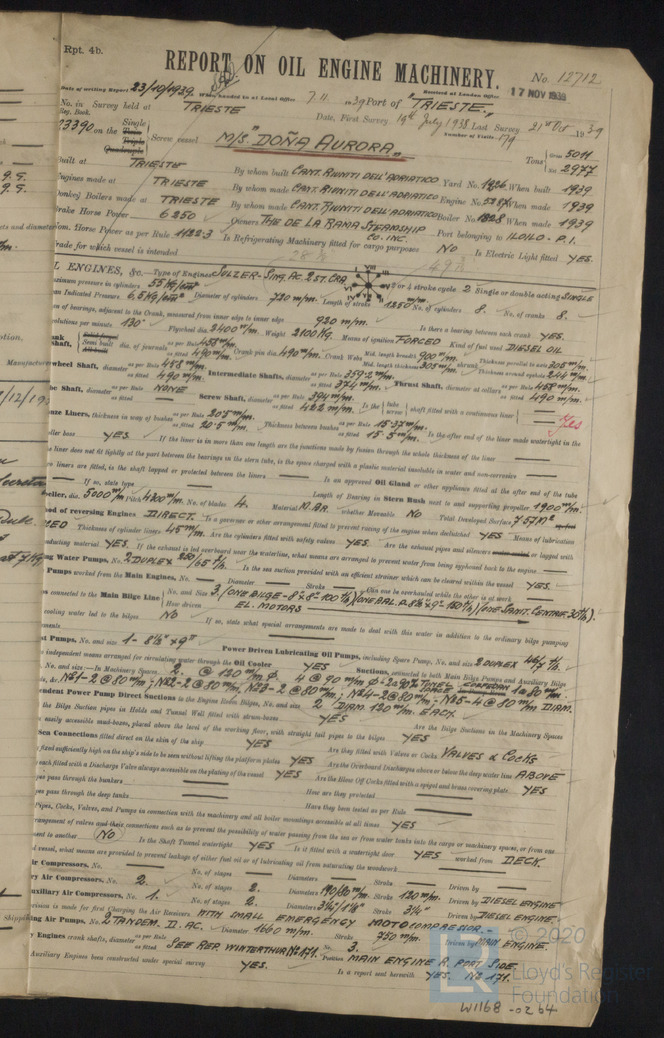 Rpt. 4b.
REPORT ON OIL ENGINE MACHINERY.
No. 12712
Date of writing Report 23/10/1939. When handed in at Local Office 7.11 1939 Port of "TRIESTE."
Received at London Office 17 NOV 1939
No. in Survey held at TRIESTE Date, First Survey 19th July 1938 Last Survey 21st Oct 1939
Reg. Book. Number of Visits 179
23390 on the Single Screw vessel M/S "DOÑA AURORA."
Tons Gross 5011
Net 2977
Built at TRIESTE By whom built CANT. RIUNITI DELL'ADRIATICO Yard No. 1226 When built 1939
Engines made at TRIESTE By whom made CANT. RIUNITI DELL'ADRIATICO Engine No. When made 1939
Donkey Boilers made at TRIESTE By whom made CANT. RIUNITI DELL'ADRIATICO Boiler No. When made 1939
Brake Horse Power 6250 Owners THE DE LA RAMA STEAMSHIP CO. INC. Port belonging to ILOILO - P.I.
Nom. Horse Power as per Rule 1122.3 Is Refrigerating Machinery fitted for cargo purposes NO Is Electric Light fitted YES.
Trade for which vessel is intended
L ENGINES, &c.—Type of Engines SULZER-SING. AC. 2 ST. CRA 2 or 4 stroke cycle 2 Single or double acting SINGLE
Maximum pressure in cylinders 55 Kg/cm² Diameter of cylinders 720 m/m. Length of stroke 1250 m/m No. of cylinders 8. No. of cranks 8.
Mean Indicated Pressure 6,5 Kg/cm²
of bearings, adjacent to the Crank, measured from inner edge to inner edge 920 m/m. Is there a bearing between each crank YES.
Revolutions per minute 130 Flywheel dia. 2400 m/m. Weight 2100 Kg. Means of ignition FORCED Kind of fuel used DIESEL OIL.
Crank Shaft, dia. of journals as per Rule 458 m/m. as fitted 490 m/m. Crank pin dia. 490 m/m. Crank Webs Mid. length breadth 900 m/m. Mid. length thickness 305 m/m. shrunk Thickness parallel to axis 305 m/m. Thickness around eyehole 204 m/m.
Flywheel Shaft, diameter as per Rule 458 m/m. as fitted 490 m/m. Intermediate Shafts, diameter as per Rule 359.2 m/m. as fitted 374 m/m. Thrust Shaft, diameter at collars as per Rule 458 m/m. as fitted 490 m/m.
Tube Shaft, diameter as per Rule NONE as fitted Screw Shaft, diameter as per Rule 394 m/m. as fitted 462 m/m. Is the tube screw shaft fitted with a continuous liner Yes
Bronze Liners, thickness in way of bushes as per Rule 20.5 m/m. as fitted 20.5 m/m. Thickness between bushes as per Rule 15.37 m/m. as fitted 15.5 m/m. Is the after end of the liner made watertight in the
propeller boss YES. If the liner is in more than one length are the junctions made by fusion through the whole thickness of the liner
If the liner does not fit tightly at the part between the bearings in the stern tube, is the space charged with a plastic material insoluble in water and non-corrosive
If two liners are fitted, is the shaft lapped or protected between the liners Is an approved Oil Gland or other appliance fitted at the after end of the tube
If so, state type Length of Bearing in Stern Bush next to and supporting propeller 1900 m/m.
Propeller, dia. 5000 m/m Pitch No. of blades 4 Material M.BR. whether Moveable NO Total Developed Surface 7.57 M²
Method of reversing Engines DIRECT. Is a governor or other arrangement fitted to prevent racing of the engine when declutched YES. Means of lubrication
FORCED Thickness of cylinder liners 45 m/m. Are the cylinders fitted with safety valves YES. Are the exhaust pipes and silencers or lagged with
non-conducting material YES. If the exhaust is led overboard near the waterline, what means are arranged to prevent water from being syphoned back to the engine
Cooling Water Pumps, No. 2 DUPLEX Is the sea suction provided with an efficient strainer which can be cleared within the vessel YES.
Pumps worked from the Main Engines, No. Diameter Stroke Can one be overhauled while the other is at work
Pumps connected to the Main Bilge Line No. and Size 3. (ONE BILGE - 8"x8" 100 T/h) (ONE BAL. P. 8½"x9" 150 T/h) (ONE SANIT. CENTRE. 30 T/h).
How driven EL. MOTORS
Is the cooling water led to the bilges NO If so, state what special arrangements are made to deal with this water in addition to the ordinary bilge pumping
arrangements
Ballast Pumps, No. and size 1 - 8½" x 9" Power Driven Lubricating Oil Pumps, including Spare Pump, No. and size 2 DUPLEX
independent means arranged for circulating water through the Oil Cooler YES Suctions, connected to both Main Bilge Pumps and Auxiliary Bilge
No. and size:—In Machinery Spaces 2 @ 130 m/m Ø. 4 @ 90 m/m Ø
&c. No1-2 @ 80 m/m; No2-2 @ 80 m/m; No3-2 @ 80 m/m; No4-2 @ 80 m/m; No5-4 @ 80 m/m DIAM.
Independent Power Pump Direct Suctions to the Engine Room Bilges, No. and size 2 DIAM. 120 m/m. EACH.
the Bilge Suction pipes in Holds and Tunnel Well fitted with strum-boxes YES Are the Bilge Suctions in the Machinery Spaces
easily accessible mud-boxes, placed above the level of the working floor, with straight tail pipes to the bilges YES
Sea Connections fitted direct on the skin of the ship YES Are they fitted with Valves or Cocks VALVES & COCKS
fixed sufficiently high on the ship's side to be seen without lifting the platform plates YES Are the Overboard Discharges above or below the deep water line ABOVE
each fitted with a Discharge Valve always accessible on the plating of the vessel YES Are the Blow Off Cocks fitted with a spigot and brass covering plate YES
pipes pass through the bunkers How are they protected
pipes pass through the deep tanks Have they been tested as per Rule
Pipes, Cocks, Valves, and Pumps in connection with the machinery and all boiler mountings accessible at all times YES
arrangement of valves and their connections such as to prevent the possibility of water passing from the sea or from water tanks into the cargo or machinery spaces, or from one
compartment to another No Is the Shaft Tunnel watertight YES Is it fitted with a watertight door YES worked from DECK.
vessel, what means are provided to prevent leakage of either fuel oil or of lubricating oil from saturating the woodwork
Air Compressors, No. No. of stages Diameters Stroke Driven by
Auxiliary Air Compressors, No. 2. No. of stages 2. Diameters 190/80 m/m. Stroke 120 m/m. Driven by DIESEL ENGINE
Auxiliary Air Compressors, No. 1. No. of stages 2. Diameters Stroke 3¼" Driven by DIESEL ENGINE
provision is made for first Charging the Air Receivers WITH SMALL EMERGENCY MOTOCOMPRESSOR.
Scavenging Air Pumps, No. 2 TANDEM. D. AC. Diameter 1660 m/m. Stroke 750 m/m. Driven by MAIN ENGINE
Auxiliary Engines crank shafts, diameter as per Rule as fitted SEE REP. WINTERTHUR No 171. No. 3. Position MAIN ENGINE R. PORT SIDE.
Auxiliary Engines been constructed under special survey YES. Is a report sent herewith YES. No 171.
© 2020
Lloyd's Register
Foundation
W1168-0264